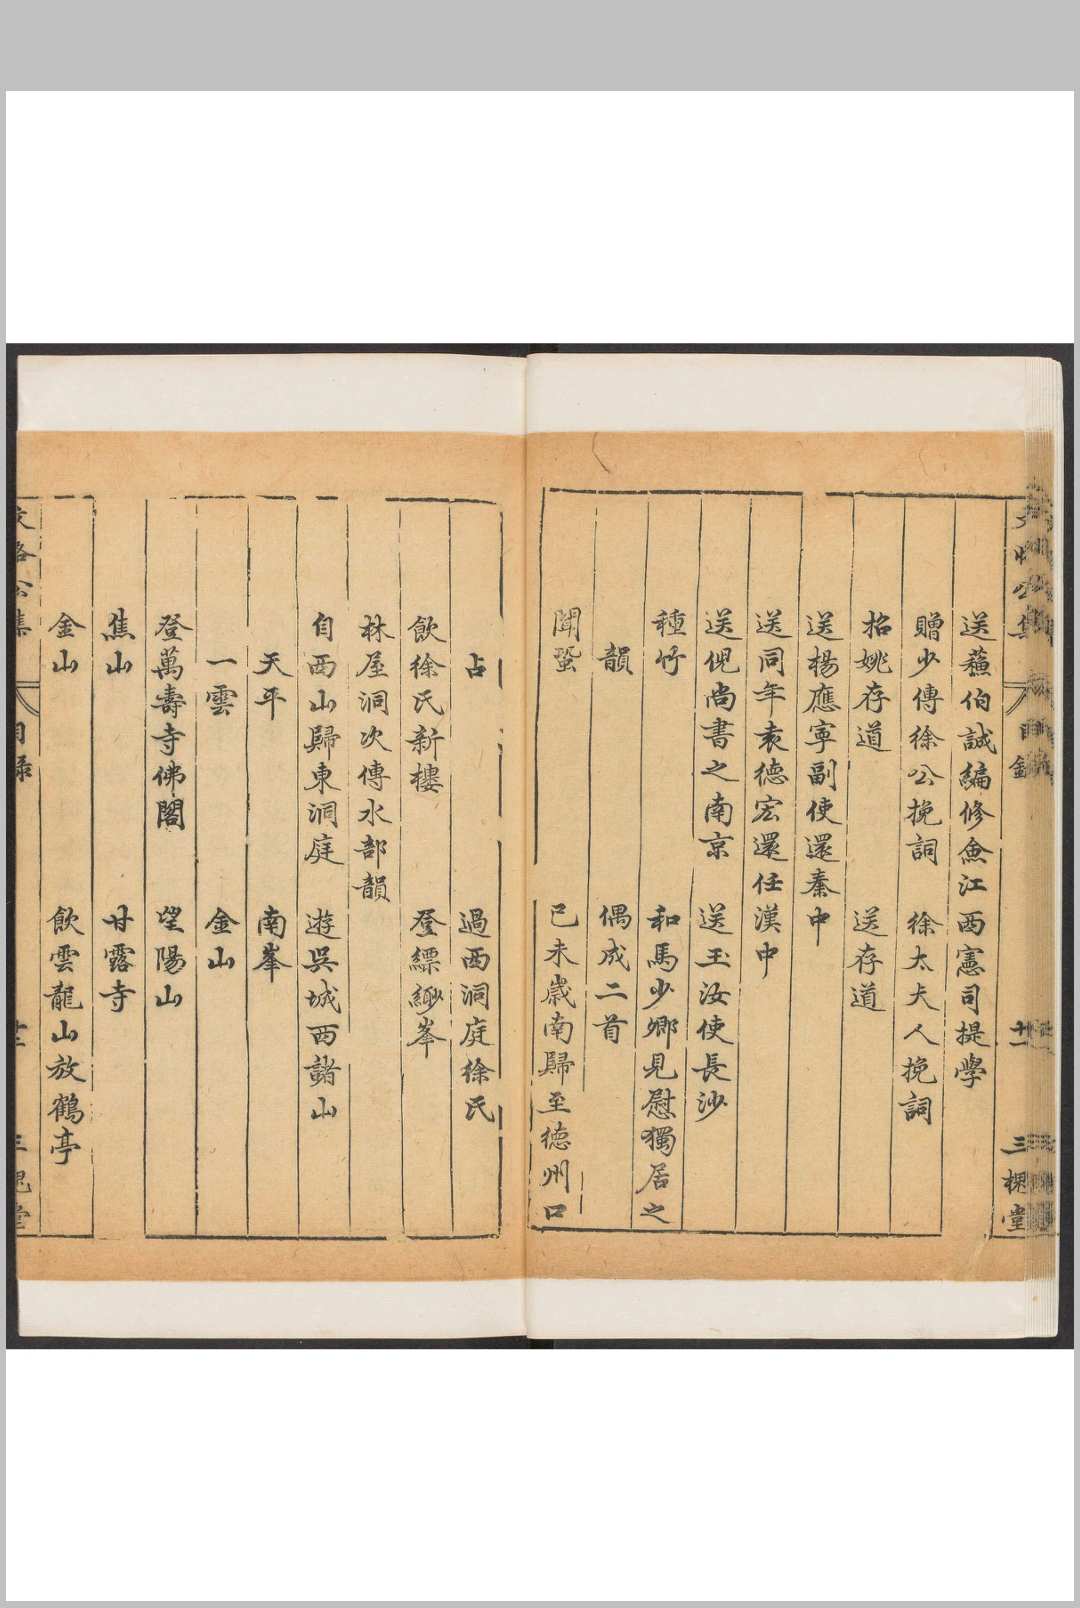 目錄 十二 三槐堂
送蘓伯誠編修僉江西憲司提學
贈少傅徐公挽詞 徐太夫人挽詞
招姚存道 送存道
送楊應寧副使還秦中
送同年袁德宏還任漢中
送倪尚書之南京 送玉汝使長沙
種竹 和馬少卿見慰獨居之
韻 偶成二首
聞蛩 已未歲南歸至德州口
占 過西洞庭徐氏
飲徐氏新樓 登縹緲峯
林屋洞次傳水部韻
自西山歸東洞庭 遊吳城西諸山
天平 南峯
一雲 金山
登萬壽寺佛閣 望陽山
焦山 甘露寺
金山 飲雲龍山放鶴亭
文恪公集 目錄